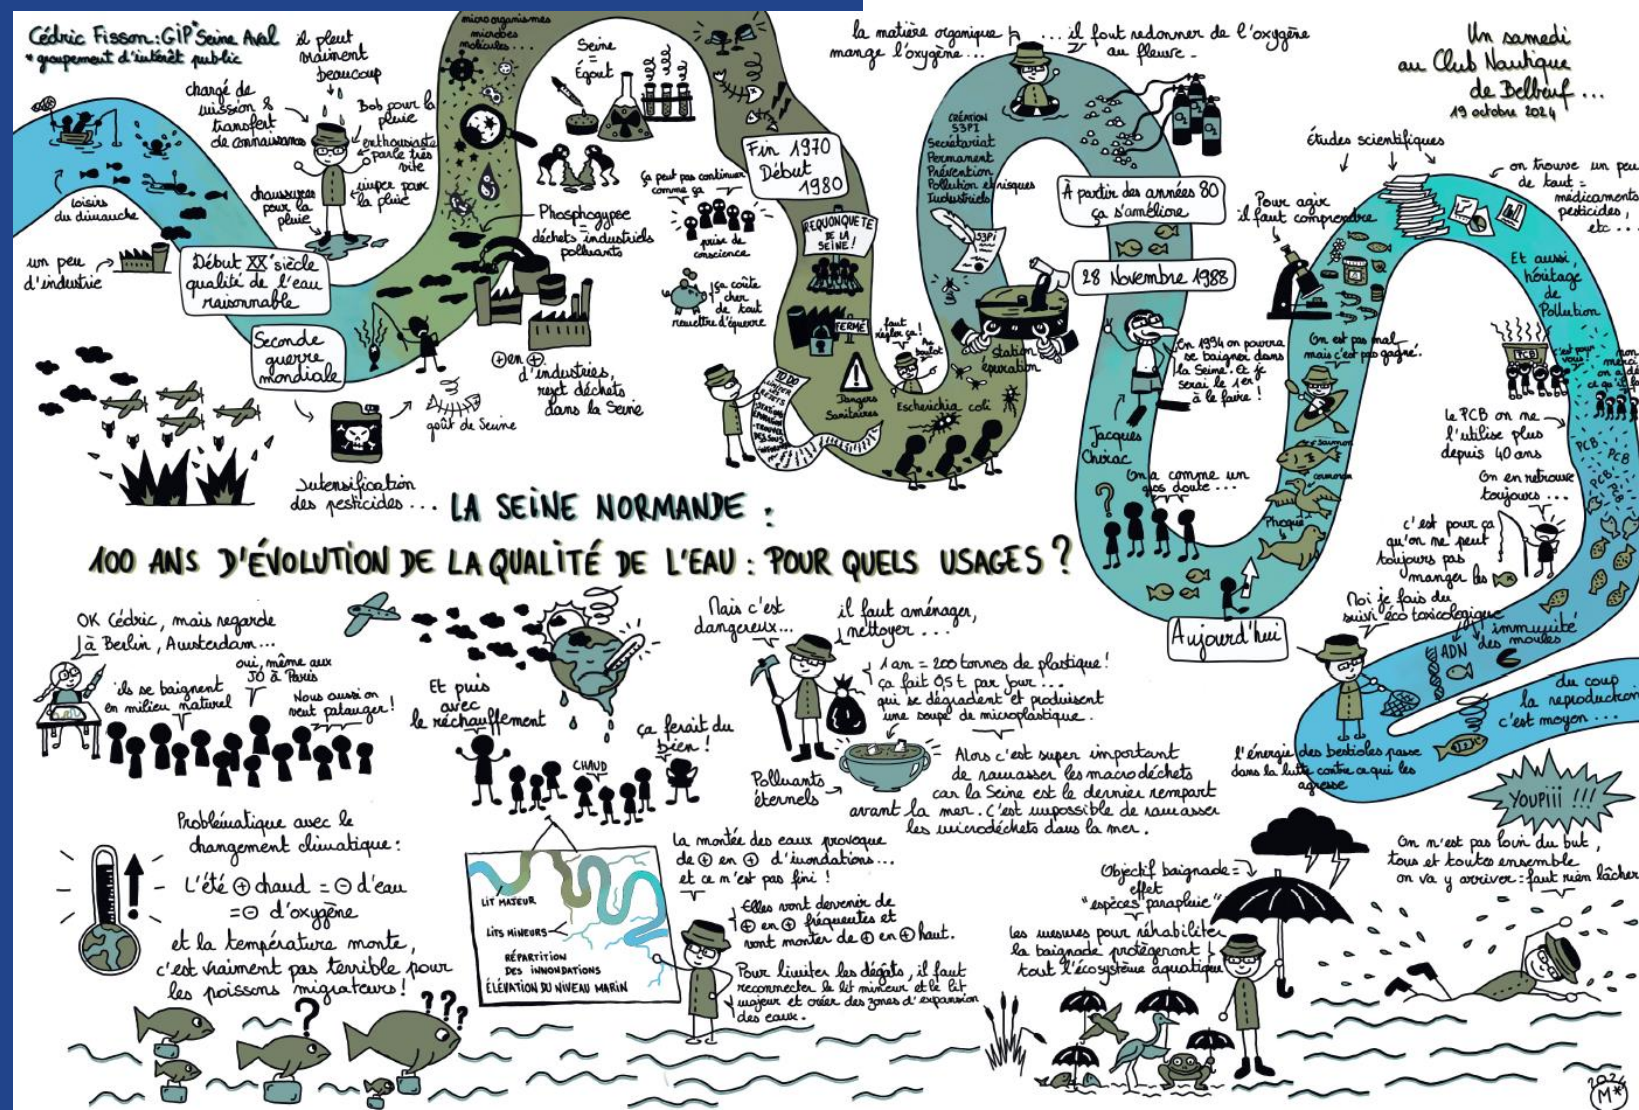 Cédric Fisson : GIP* Seine Aval
* groupement d'intérêt public
il pleut
vraiment
beaucoup
chargé de
mission &
transfert
de connaissances
Bob pour la
pluie
enthousiaste
parle très
vite
chaussures
pour la
pluie
imper pour
la pluie
loisirs
du dimanche
un peu
d'industrie
Début XXe siècle
qualité de l'eau
raisonnable
Seconde
guerre
mondiale
Intensification
des pesticides ...
goût de Seine
micro organismes
microbes
molécules ...
Seine
=
Égout
Phosphogypse
= déchets industriels
polluants
⊕ en ⊕
d'industries,
rejet déchets
dans la Seine
ça peut pas continuer
comme ça
prise de
conscience
ça coûte
cher
de tout
remettre d'équerre
Fin 1970
Début
1980
REQUONQUETE
DE LA
SEINE !
FERMÉ
Dangers
Sanitaires
TO DO
faut
régler ça !
Au
boulot
Escherichia coli
CRÉATION
S3PI
Secrétariat
Permanent
Prévention
Pollution et risques
Industriels
S3PI
Station
épuration
la matière organique
mange l'oxygène ...
... il faut redonner de l'oxygène
au fleuve -
O2
O2
O2
À partir des années 80
ça s'améliore
28 Novembre 1988
En 1994 on pourra
se baigner dans
la Seine. Et je
serai le 1er
à le faire !
Jacques
Chirac
On a comme un
gros doute ...
?
Aujourd'hui
Un samedi
au Club Nautique
de Belbeuf ...
19 octobre 2024
Études scientifiques
Pour agir
il faut comprendre
On est pas mal
mais c'est pas gagné.
saumon
cormoran
Phoque
on trouve un peu
de tout =
médicaments
pesticides,
etc ...
Et aussi,
héritage
de
Pollution
PCB
c'est pour
vous !
le PCB on ne
l'utilise plus
depuis 40 ans
PCB
PCB
PCB
PCB
On en retrouve
toujours ...
c'est pour ça
qu'on ne peut
toujours pas
manger les
Moi je fais du
suivi éco toxicologique
ADN
immunité
des moules
du coup
la reproduction
c'est moyen ...
l'énergie des bestioles passe
dans la lutte contre ce qui les
agresse
LA SEINE NORMANDE :
100 ANS D'ÉVOLUTION DE LA QUALITÉ DE L'EAU : POUR QUELS USAGES ?
OK Cédric, mais regarde
à Berlin, Amsterdam ...
ils se baignent
en milieu naturel
oui, même aux
JO à Paris
Nous aussi on
veut patauger !
Et puis
avec
le réchauffement
CHAUD
ça ferait du
bien !
Mais c'est
dangereux...
il faut aménager,
nettoyer ...
1 an = 200 tonnes de plastique !
ça fait 0,5 t par jour ...
qui se dégradent et produisent
une soupe de microplastique.
Polluants
éternels
Alors c'est super important
de ramasser les macrodéchets
car la Seine est le dernier rempart
avant la mer. C'est impossible de ramasser
les microdéchets dans la mer.
Problématique avec le
changement climatique :
L'été ⊕ chaud = ⊖ d'eau
= ⊖ d'oxygène
et la température monte,
c'est vraiment pas terrible pour
les poissons migrateurs !
?
???
LIT MAJEUR
LITS MINEURS
RÉPARTITION
DES INNONDATIONS
ÉLÉVATION DU NIVEAU MARIN
La montée des eaux provoque
de ⊕ en ⊕ d'inondations ...
et ce n'est pas fini !
Elles vont devenir de
⊕ en ⊕ fréquentes et
vont monter de ⊕ en ⊕ haut.
Pour limiter les dégâts, il faut
reconnecter le lit mineur et le lit
majeur et créer des zones d'expansion
des eaux.
Objectif baignade =
effet
"espèces parapluie"
les mesures pour réhabiliter
la baignade protègeront
tout l'écosystème aquatique
YOUPIII !!!
On n'est pas loin du but,
tous et toutes ensemble
on va y arriver : faut rien lâcher
2024
M*